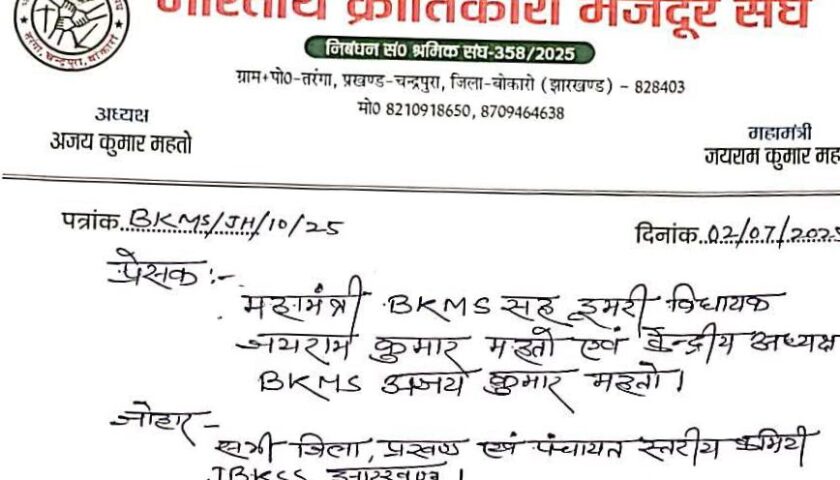 भारतीय क्रांतिकारी मजदूर संघ
निबंधन सं0 श्रमिक संघ-358/2025
ग्राम+पो0-तरंगा, प्रखण्ड-चन्द्रपुरा, जिला-बोकारो (झारखण्ड) - 828403
मो0 8210918650, 8709464638
अध्यक्ष
अजय कुमार महतो
महामंत्री
जयराम कुमार मह
पत्रांक..BKMS/JH/10/25
दिनांक..02/07/2025
प्रेसक :-
महामंत्री BKMS सह डूमरी विधायक
जयराम कुमार महतो एवं केन्द्रीय अध्यक्ष
BKMS अजय कुमार महतो।
जोहार -
सभी जिला, प्रखण्ड एवं पंचायत स्तरीय कमिटी
JBKSS झारखण्ड।